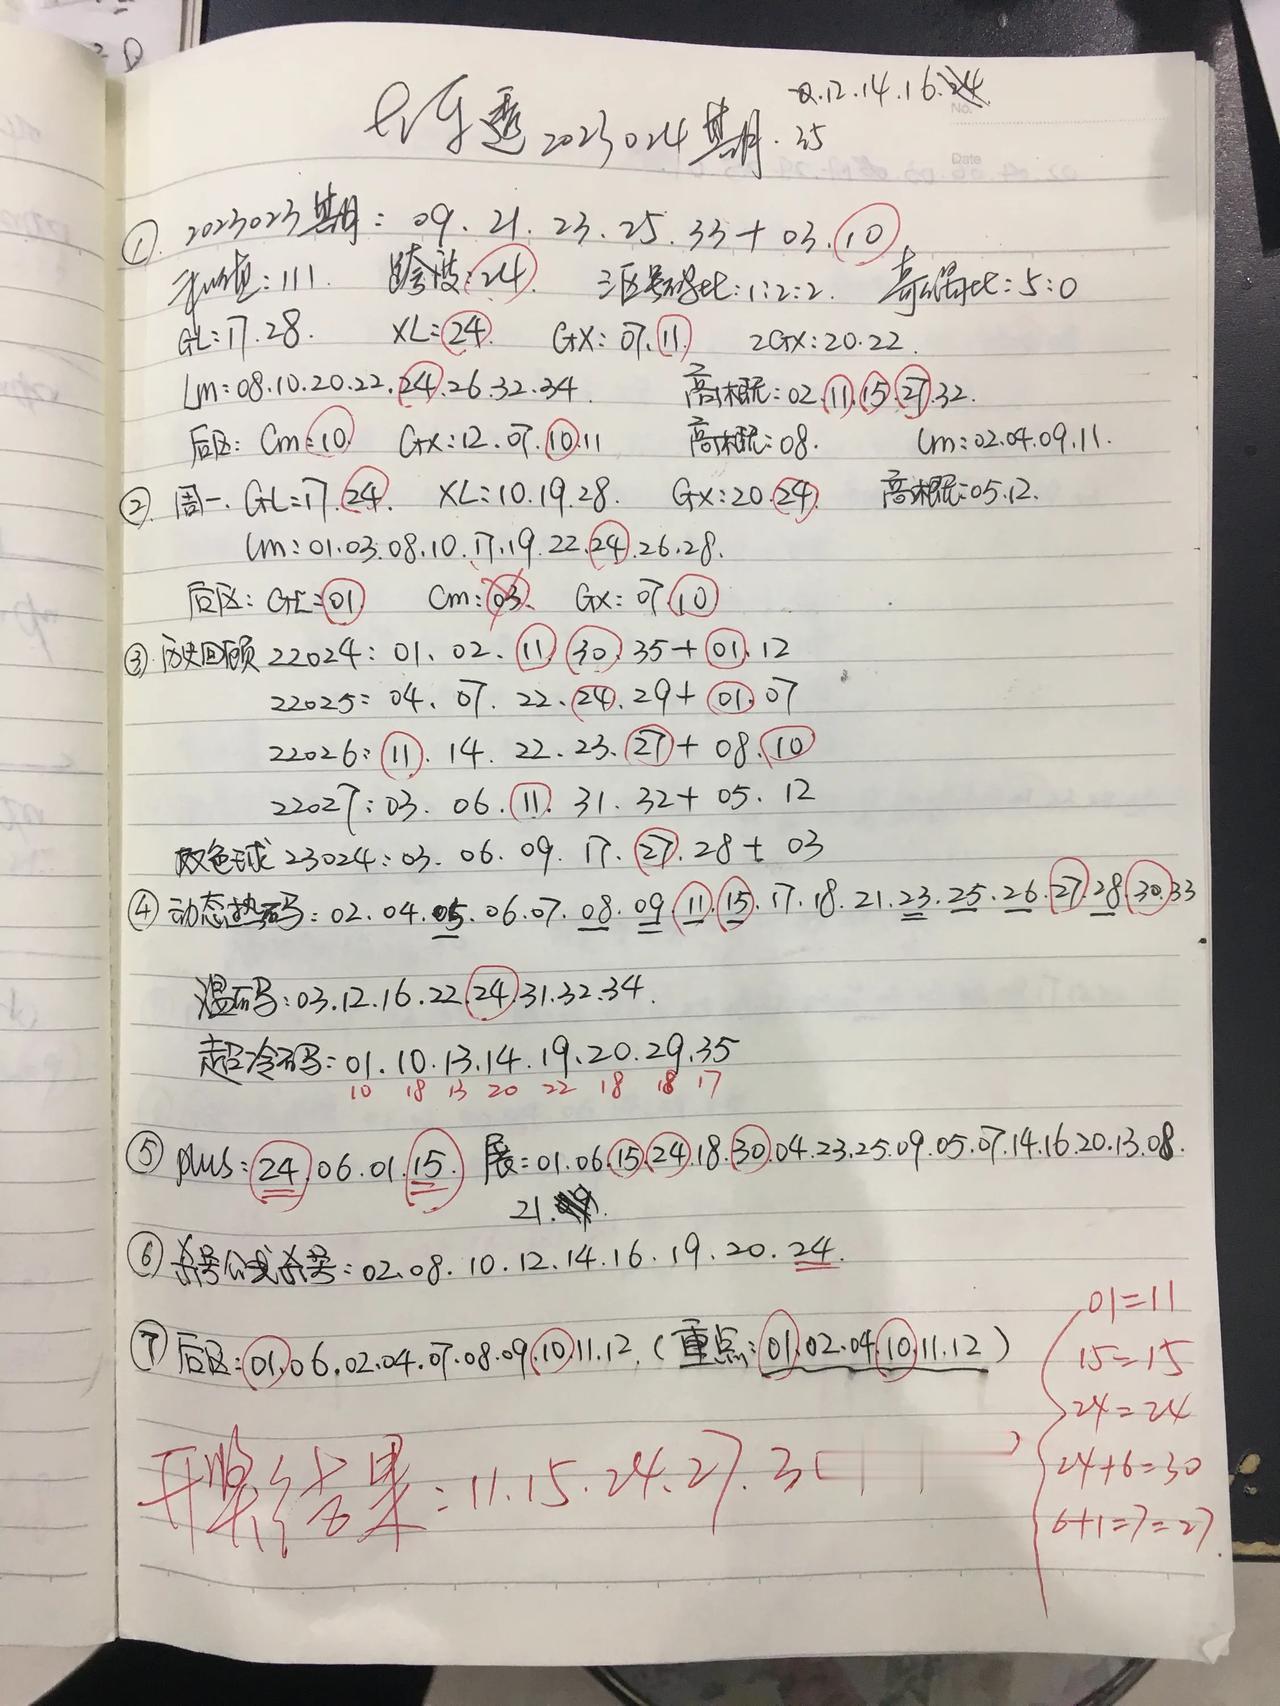 02.12.14.16.24
大乐透2023024期. 35
①. 2023023期: 09. 21. 23. 25. 33+03. 10
和值:111. 跨度:24. 三区号码比:1:2:2. 奇偶比:5:0
GL:17.28. XL:24. GX:07.11 2GX:20.22.
Lm:08.10.20.22.24.26.32.34 高概:02.11.15.27.32.
后区: Cm:10. GX:12.07.10.11 高概:08. Lm:02.04.09.11.
②. 周一. GL:17.24. XL:10.19.28. GX:20.24. 高概:05.12.
Lm:01.03.08.10.17.19.22.24.26.28.
后区: GL:01 Cm:03. GX:07.10
③. 历史回顾 22024: 01. 02. 11. 30. 35+01.12
22025: 04. 07. 22. 24. 29+01.07
22026: 11. 14. 22. 23. 27+08.10
22027: 03. 06. 11. 31. 32+05. 12
双色球 23024: 03. 06. 09. 17. 27. 28+03
④ 动态热码: 02.04.05.06.07.08.09.11.15.17.18.21.23.25.26.27.28.30.33
温码:03.12.16.22.24.31.32.34.
超冷码:01.10.13.14.19.20.29.35
10 18 13 20 22 18 18 17
⑤ plus:24.06.01.15. 展:01.06.15.24.18.30.04.23.25.09.05.07.14.16.20.13.08.
21.
⑥ 杀号公式杀号:02.08.10.12.14.16.19.20.24.
⑦ 后区:01.06.02.04.07.08.09.10.11.12.(重点:01.02.04.10.11.12)
01=11
15=15
24=24
24+6=30
6+1=7=27
开奖结果:11.15.24.27.3